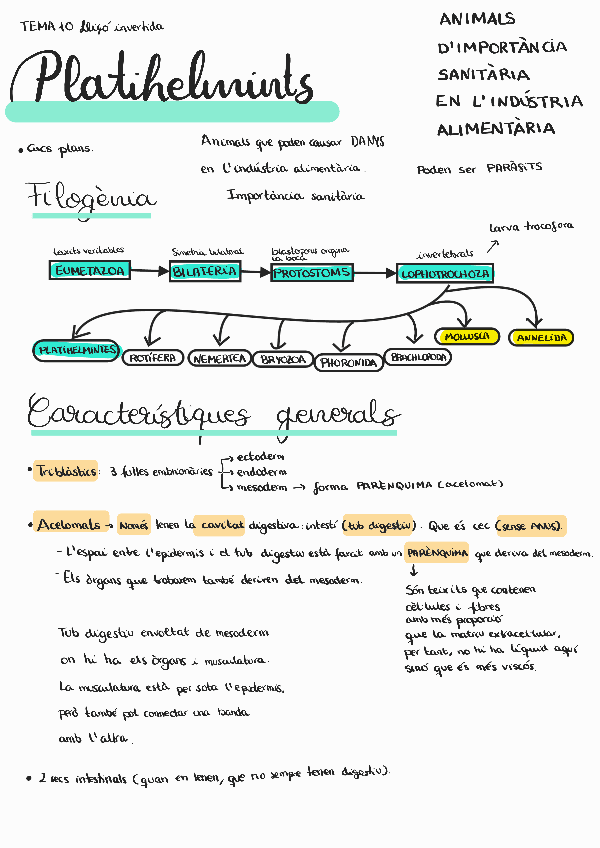 TEMA 10 lliçó invertida
Platihelmints
ANIMALS
D'IMPORTÀNCIA
SANITÀRIA
EN L'INDÚSTRIA
ALIMENTÀRIA
• Cucs plans.
Animals que poden causar DANYS
en l'indústria alimentària.
Importància sanitària
Poden ser PARÀSITS
Filogènia
larva trocofora
teixits veritables
Simetria bilateral
blastoporus origina
la boca
invertebrats
EUMETAZOA
BILATERIA
PROTOSTOMS
LOPHOTROCHOZA
PLATIHELMINTES
ROTÍFERA
NEMERTEA
BRYOZOA
PHORONIDA
BRACHLOPODA
MOLLUSCA
ANNELIDA
Característiques generals
• Triblàstics: 3 fulles embrionàries
→ ectoderm
→ endoderm
→ mesoderm → forma PARÈNQUIMA (acelomat)
• Acelomats → Només tenen la cavitat digestiva: intestí (tub digestiu). Que és cec (sense ANUS).
- L'espai entre l'epidermis i el tub digestiu està farcit amb un PARÈNQUIMA que deriva del mesoderm.
- Els òrgans que trobarem també deriven del mesoderm.
Són teixits que contenen
cèl·lules i fibres
amb més proporció
que la matriu extracel·lular,
per tant, no hi ha líquid aquí
sinó que és més viscós.
Tub digestiu envoltat de mesoderm
on hi ha els òrgans i musculatura.
La musculatura està per sota l'epidermis,
però també pot connectar una banda
amb l'altra.
• 2 cecs intestinals (quan en tenen, que no sempre tenen digestiu).